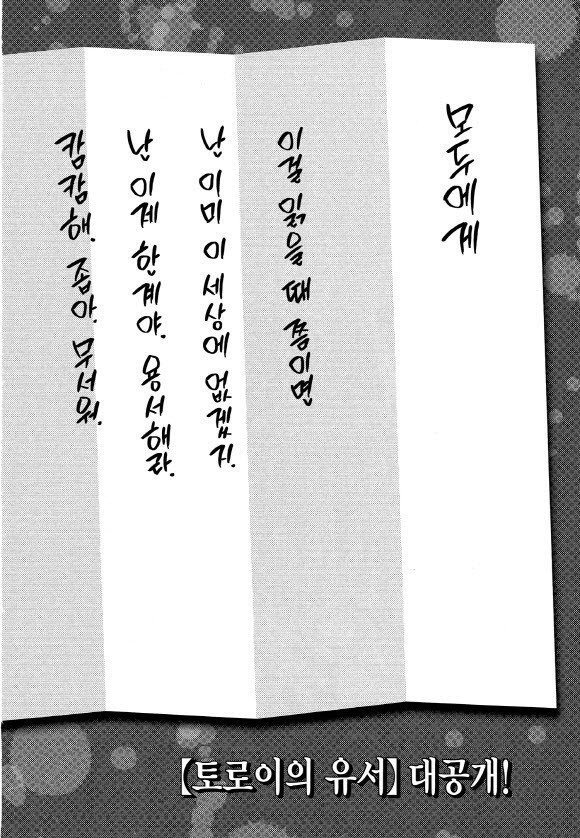 모두에게
이걸 읽을 때 쯤이면
난 이미 이 세상에 없겠지.
난 이제 한계야. 용서해라.
캄캄해. 좁아. 무서워.
【토로이의 유서】 대공개!